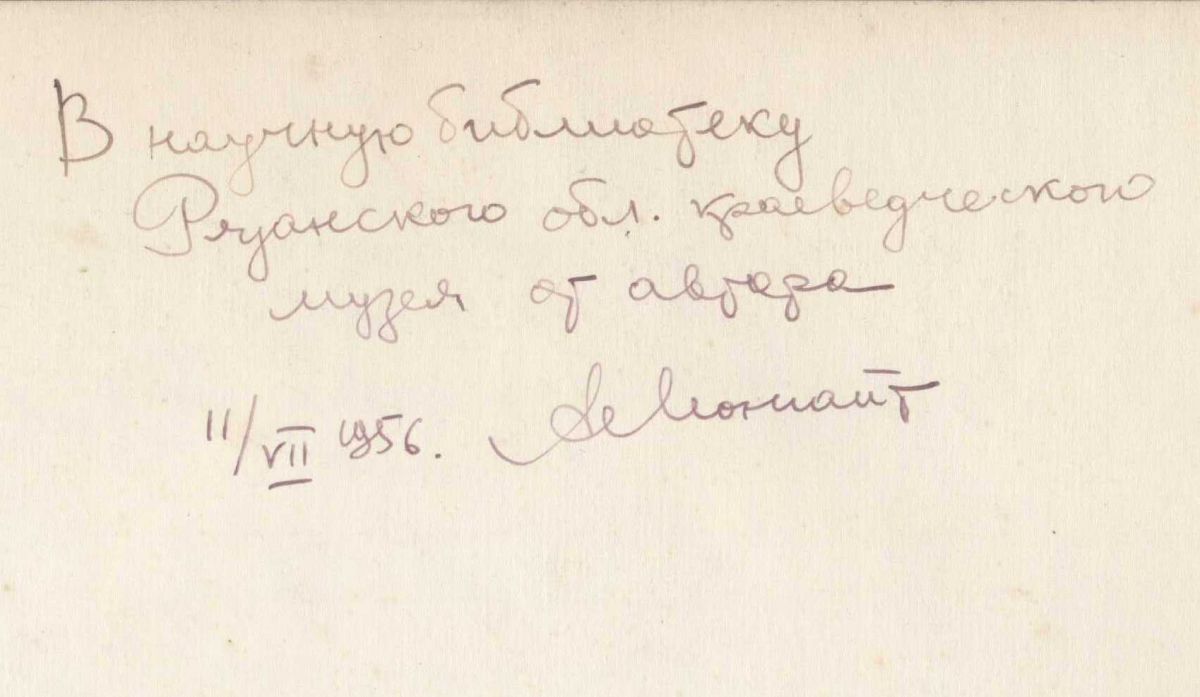 В научную библиотеку
Рязанского обл. краеведческого
музея от автора
11/VII 1956. А Монгайт